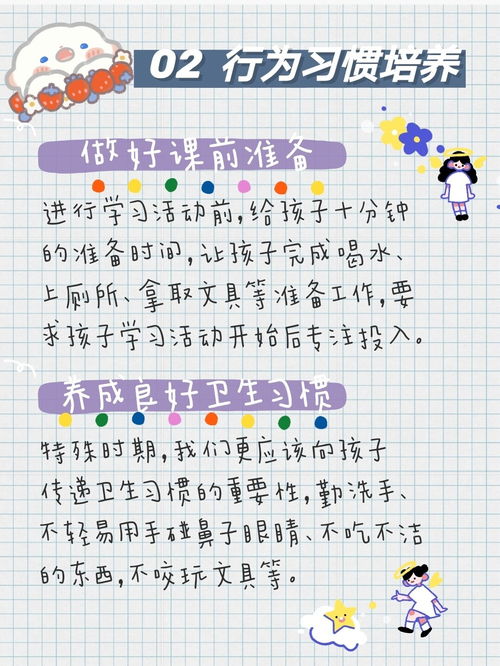 02 行为习惯培养
做好课前准备
进行学习活动前,给孩子十分钟
的准备时间,让孩子完成喝水、
上厕所、拿取文具等准备工作,要
求孩子学习活动开始后专注投入。
养成良好卫生习惯
特殊时期,我们更应该向孩子
传递卫生习惯的重要性,勤洗手、
不轻易用手碰鼻子眼睛、不吃不洁
的东西,不咬玩文具等。